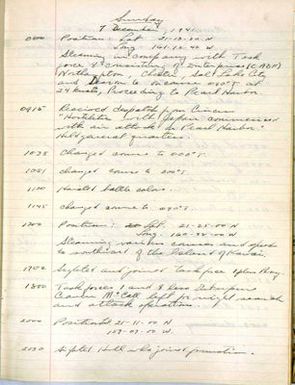 Sunday
7 December, 1941
0000 Position: Lat. 21-13-20 N
Long. 161-13-40 W
Steaming in company with Task
force 8 consisting of Enterprise (C.A.D.)
Northampton, Chester, Salt Lake City
and
24 knots, Proceeding to Pearl Harbor.
0915 Received dispatch from Cincus
"Hostilities with Japan commenced
with air attack on Pearl Harbor"
Held general quarters.
1035 Changed course to 000°T.
1051 Changed course to
1100 Hoisted battle colors.
1145 Changed course to 090°T.
1200 Position: Lat. 21-25-00 N
Long. W
Steaming various courses and speeds
to southward of the Island of Kauai.
1702 Sighted and joined task force
1800 Task forces 1 and 8 less Enterprise
left for night search
and attack operations.
2000 Position 21-11-00 N
159-03-00 W.
2030 Sighted Hull who joined formation.